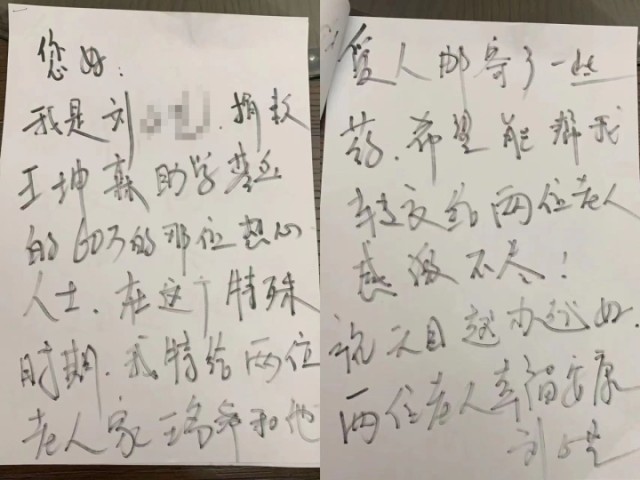 您好：
我是刘 捐款
王坤森助学基金
的60万的那位热心
人士。在这个特殊
时期。我特给两位
老人家王 和他
爱人邮寄了一些
药。希望能帮我
转交给两位老人
感激不尽！
祝 节目越办越好。
两位老人幸福安康
刘